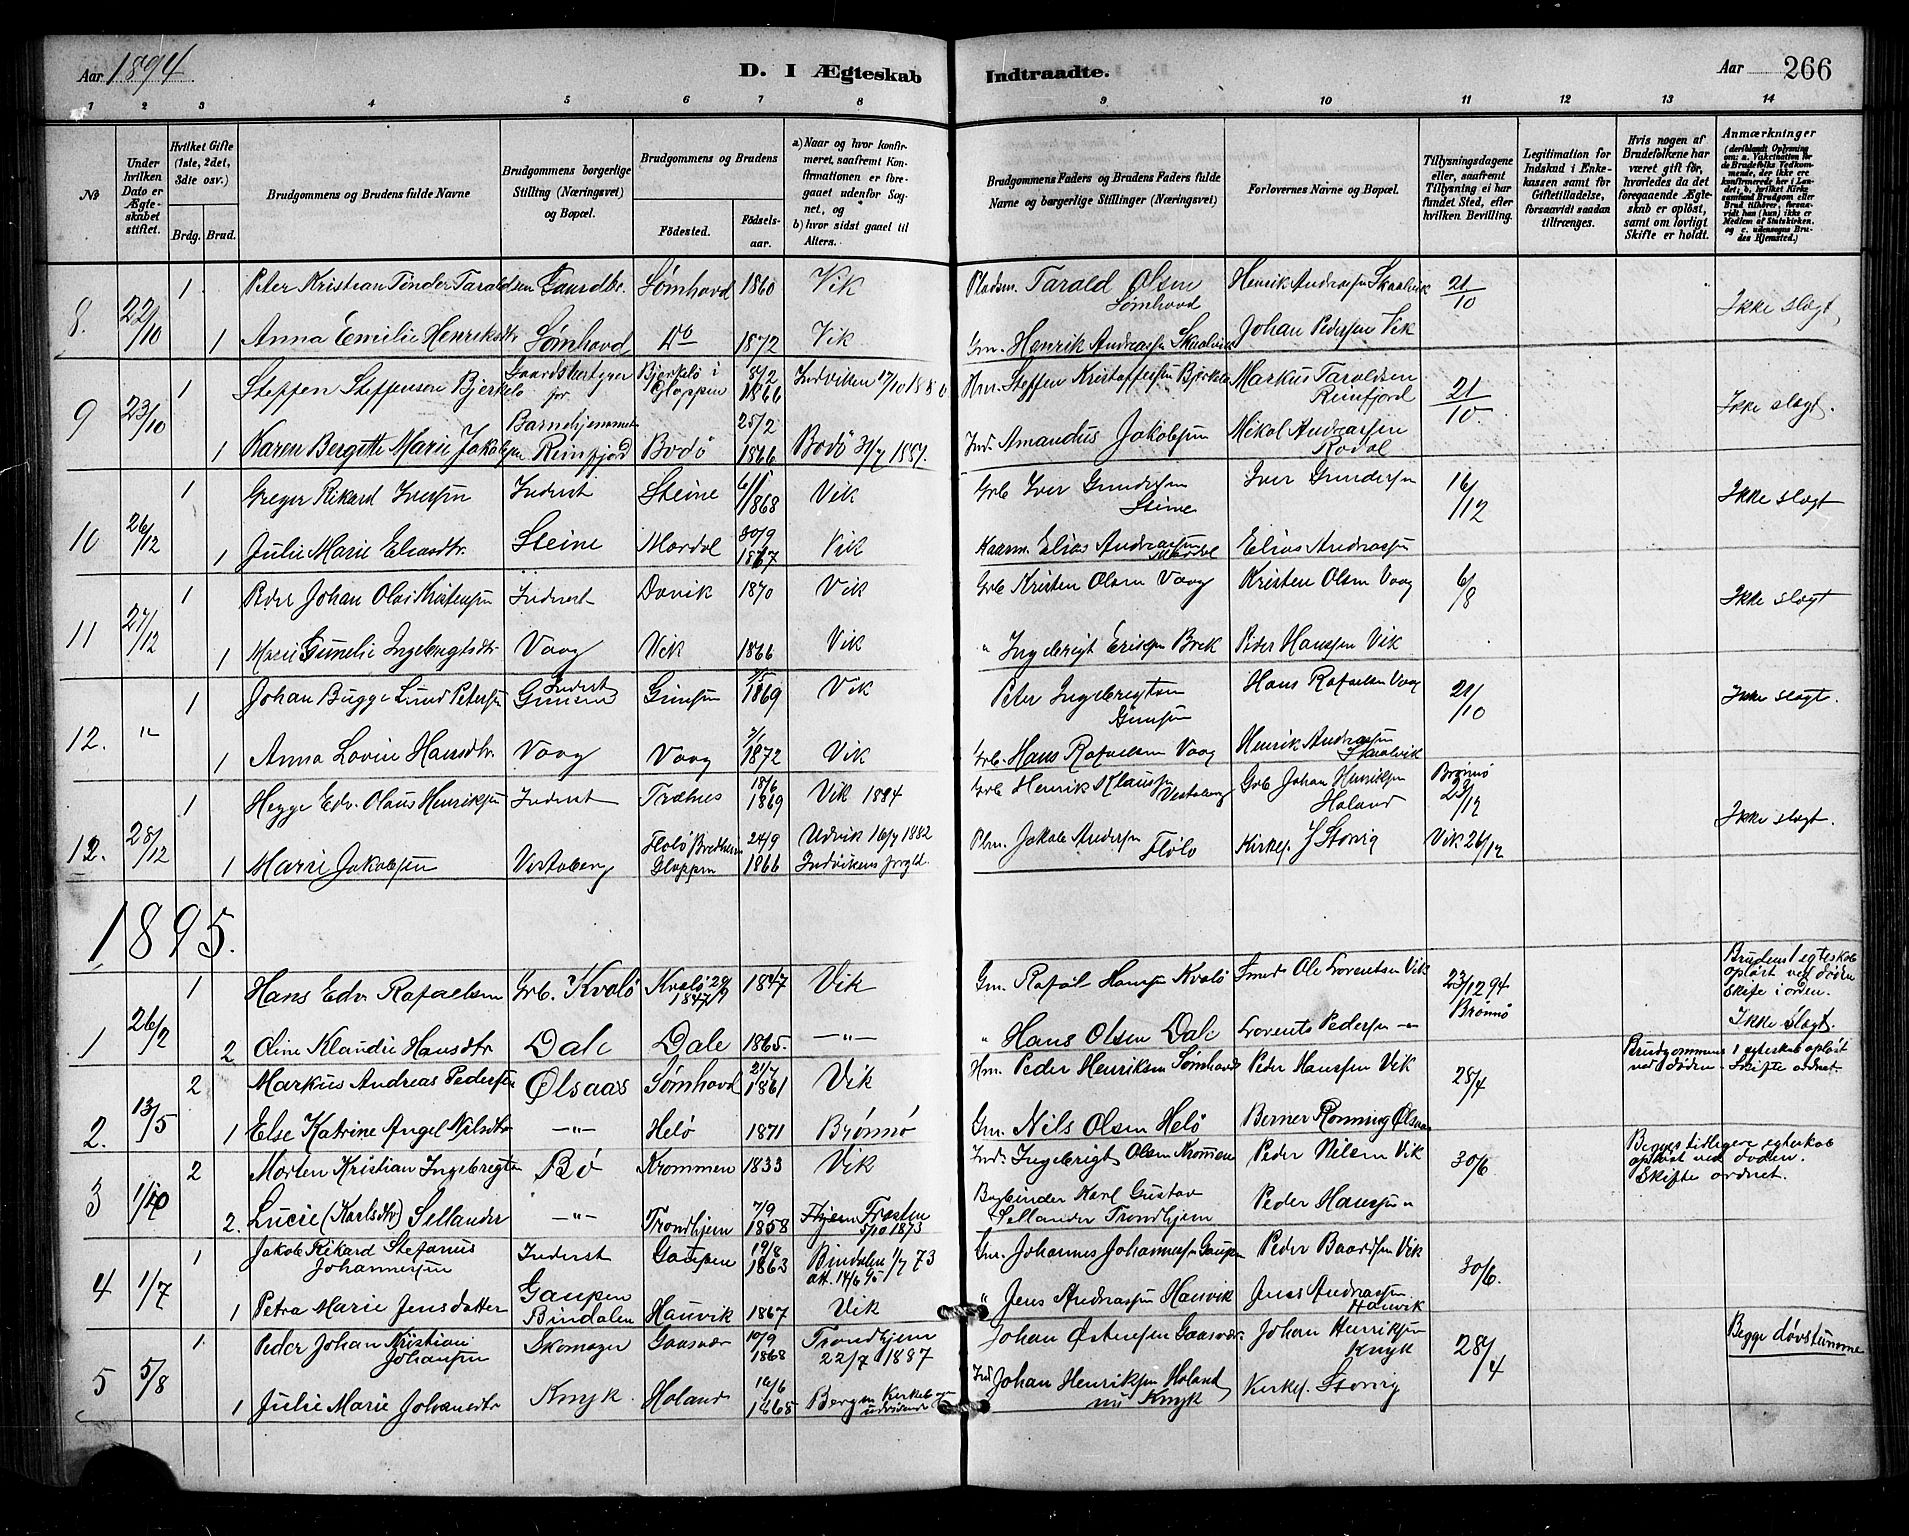 Aar 1894
D. I Ægteskab Indtraadte.
Aar 266
1 2 3 4 5 6 7 8 9 10 11 12 13 14
No
Under hvilken Dato er Ægteskabet stiftet.
Hvilket Gifte (1ste, 2det, 3die osv.)
Brdg. Brud.
Brudgommens og Brudens fulde Navne
Brudgommens borgerlige Stilling (Næringsvei) og Bopæl.
Brudgommens og Brudens
Fødested. Fødselsaar.
a) Naar og hvor konfirmeret, saafremt Konfirmationen er foregaaet udenfor Sognet, og
b) hvor sidst gaaet til Alters.
Brudgommens Faders og Brudens Faders fulde Navne og borgerlige Stillinger (Næringsvei)
Forlovernes Navne og Bopæl.
Tillysningsdagene eller, saafremt Tillysning ei har fundet Sted, efter hvilken Bevilling.
Legitimation for Indskud i Enkekassen samt for Giftetilladelse, forsaavidt saadan tiltrænges.
Hvis nogen af Brudefolkene har været gift før, hvorledes da det foregaaende Ægteskab er opløst, samt om lovligt Skifte er holdt.
Anmærkninger
8. 22/10 1 Peter Kristian Tønder Taraldsen Gaardbr. Sømhovd 1860 Vik Pladsm. Tarald Olsen Sømhovd Henrik Andreassen Skaalvik 21/10 Ikke slægt
1 Anna Emilie Henriksdtr Sømhovd Do 1872 Vik Gm. Henrik Andreassen Skaalvik Johan Pedersen Vik
9 23/10 1 Steffen Steffensen Bjerkelo Gaardsbestyrer for Bjerkelo i Gloppen 8/2 1866 Indviken 17/10 1880 Hm. Steffen Kristoffersen Bjerkelo Markus Taraldsen Reinfjord 21/10 Ikke slægt.
1 Karen Bergitte Marie Jakobsen Barnehjemmet Reinfjord Bodö 25/2 1866 Bodö 31/7 1881. Ind. Amandus Jakobsen Mikal Andreassen Rodal
10 26/12 1 Greger Rikard Iversen Inderst Steine 6/1 1868 Vik Grb Iver Gundersen Steine Iver Gundersen 16/12 Ikke slægt
1 Julie Marie Eliasdtr. Steine Mardal 30/9 1867 Vik Kaarm. Elias Andreassen Mardal Elias Andreassen
11 27/12 1 Peder Johan Olai Kristensen Inderst Davik 1870 Vik Grb Kristen Olsen Vaag Kristen Olsen Vaag 6/8 Ikke slægt
1 Marie Gunelie Ingebrigtsdtr Vaag Vik 1866 Vik " Ingebrigt Eriksen Brek Peder Hanssen Vik
12. " 1 Johan Bugge Lund Petersen Inderst Gimsen Gimsen 1869 Vik Peter Ingebrigtsen Gimsen Hans Rafaelsen Vaag 21/10 Ikke slægt.
1 Anna Lovise Hansdtr. Vaag Vaag 1872 Vik Grb. Hans Rafaelsen Vaag Henrik Andreassen Skaalvik
12. 28/12 1 Hegge Edv. Olaus Henriksen Inderst Trælnes 18/6 1869 Vik 1884 Grb Henrik Klaussen Vestaberg Grb Johan Henriksen Holand Brønnø 23/12 Ikke slægt.
1 Marie Jakobsen Vestaberg Flolö Bredheim Gloppen 24/9 1866 Udvik 16/7 1882 Indvikens prgld. Plm. Jakob Andersen Flölo Kirkes. J Storvig Vik 26/12
1895.
1 26/2 1 Hans Edv Rafaelsen Grb. Kvalö Kvalö 29/9 1847 1847 Vik Gm. Rafäl Hansen Kvalö Smed Ole Lorentsen Vik 23/12 94. Brønnø Brudens 1 egteskab opløst ved døden Skifte i orden. Ikke slægt.
2 Oline Klaudie Hansdtr Dale Dale 1865. —"— " Hans Olsen Dale Lorents Pedersen —"
2. 13/5 2 Markus Andreas Pedersen Ølsaas Sømhovd 21/7 1861 Vik Hm. Peder Henriksen Sømhovd Peder Hanssen Vik 28/4 Brudgommens 1 egteskab opløst ved døden. Skifte ordnet.
1 Else Katrine Angel Nilsdtr —"— Helö 1871 Brønnø Gm. Nils Olsen Helö Berner Rønning Ølsaas
3 1/10 2 Morten Kristian Ingebrigtsen Bö Krommen 1833 Vik Ind. Ingebrigt Olsen Krommen Peder Nilsen Vik 30/6 Begges tidligere egteskab opløst ved døden. Skifte ordnet.
2. Lucie (Karlsdtr) Sellander —"— Trondhjem 7/9 1858 Frosten 5/10 1873 Bogbinder Karl Gustav Sellander Trondhjem Peder Hanssen "
4 1/7 1 Jakob Rikard Stefanus Johannessen Inderst Gaupen 19/8 1863 Bindalen 1/7 73 att. 14/6 95 Gm. Johannes Johannessen Gaupen Peder Baardsen Vik 30/6.
1 Petra Marie Jensdatter Gaupen Bindalen Hauvik 1867 Vik " Jens Andreassen Hauvik Jens Andreassen Hauvik
5 5/8 1. Peder Johan Kristian Johansen Skomager Gaasvær 10/9 1868 Trondhjem 22/7 1887 Johan Østensen Gaasvær Johan Henriksen Knyk 28/4 Begge døvstumme
1 Julie Marie Johansdtr Knyk Holand 16/6 1868 Bergen Kirkebogen Ind Johan Henriksen Holand nu Knyk Kirkes. Storvig